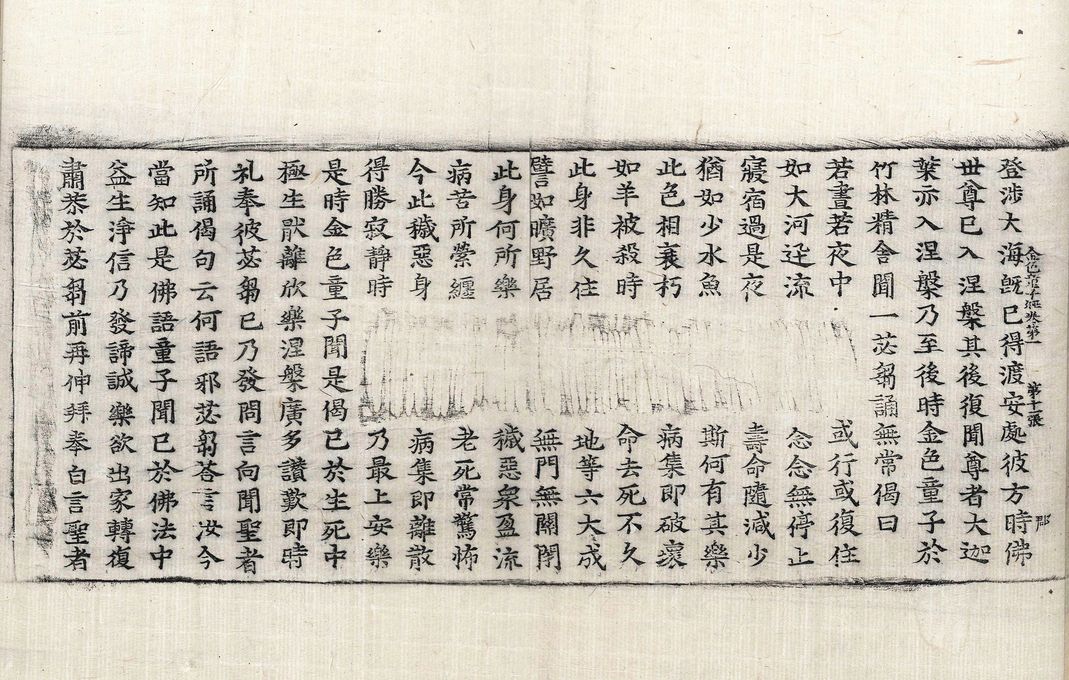 登涉大海旣已得渡安處彼方時佛
金色童子經卷第一 第十二張 那
世尊已入涅槃其後復聞尊者大迦
葉亦入涅槃乃至後時金色童子於
竹林精舍聞一苾芻誦無常偈曰
若晝若夜中 或行或復住
如大河迅流 念念無停止
寢宿過是夜 壽命隨減少
猶如少水魚 斯何有其樂
此色相衰朽 病集即破壞
如羊被殺時 命去死不久
此身非久住 地等六大成
譬如曠野居 無門無關閉
此身何所樂 穢惡泉盈流
病苦所縈纏 老死常驚怖
今此穢惡身 病集即離散
得勝寂靜時 乃最上安樂
是時金色童子聞是偈已於生死中
極生猒離欣樂涅槃廣多讚歎即時
礼奉彼苾芻已乃發問言向聞聖者
所誦偈句云何語邪苾芻荅言汝今
當知此是佛語童子聞已於佛法中
益生淨信乃發諦誠樂欲出家轉復
肅恭於苾芻前再伸拜奉白言聖者